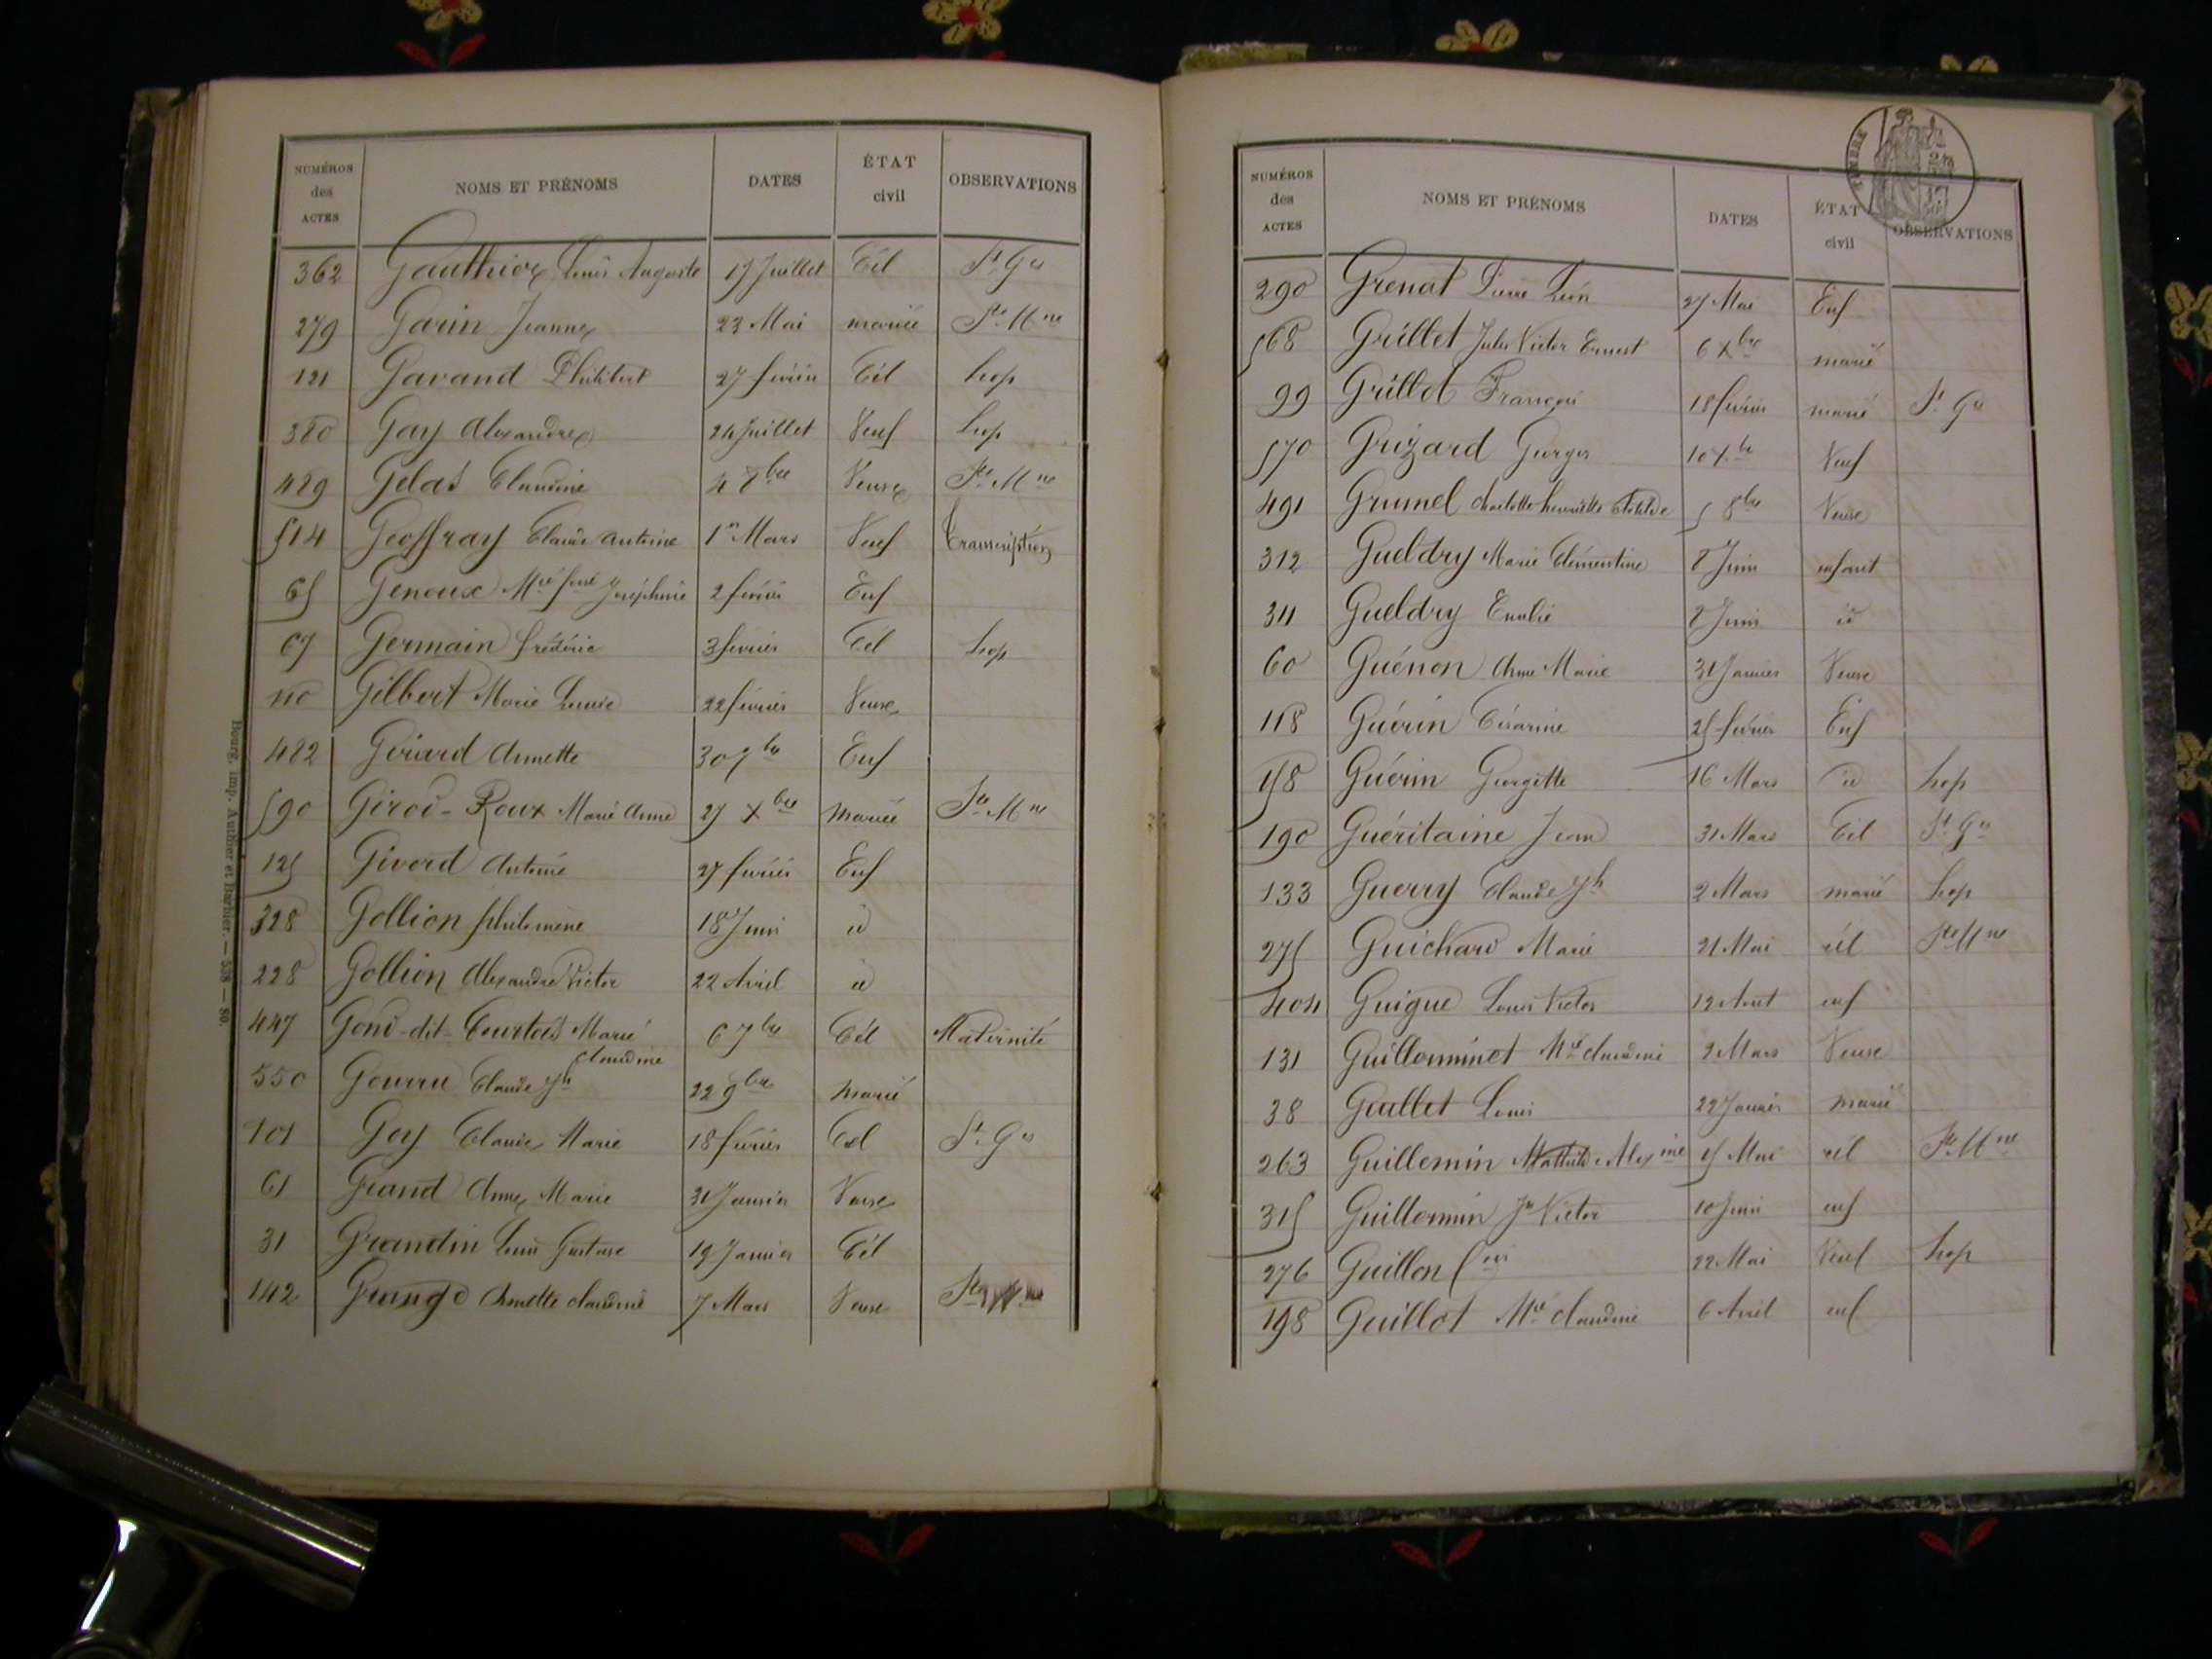 NUMÉROS des ACTES NOMS ET PRÉNOMS DATES ÉTAT civil OBSERVATIONS
362 Gauthier Louis Auguste 17 Juillet Cél St Ges
279 Garin Jeanne 23 Mai mariée Ste Mne
121 Gavand Philibert 27 février Cél hop
380 Gay Alexandre 24 Juillet Veuf hop
489 Gelas Claudine 4 8bre Veuve Ste Mne
514 Geoffray Claude Antoine 1er Mars Veuf Transcription
65 Genoux Mie Joséphine 2 février Enf
67 Germain frédéric 3 février Cél hop
110 Gilbert Marie Louise 22 février Veuve
482 Girard Annette 30 7bre Enf
590 Girod-Roux Marie Anne 27 Xbre mariée Ste Mne
125 Givord Antoine 27 février Enf
328 Gollion philomène 18 Juin id
228 Gollion Alexandre Victor 22 Avril id
447 Gond-dit-Courtois Marie Claudine 6 7bre Cél Maternité
550 Gourru Claude Jh 22 9bre marié
101 Goy Claude Marie 18 février Cél St Ges
61 Grand Anne Marie 31 Janvier Veuve
31 Grandin Louis Gustave 19 Janvier Cél
142 Grange Annette Claudine 7 Mars Veuve
Bourg, imp. Authier et Barbier. — 538 — 80.
TIMBRE
NUMÉROS des ACTES NOMS ET PRÉNOMS DATES ÉTAT civil OBSERVATIONS
290 Grenat Pierre Léon 27 Mai Enf
568 Grillet Jules Victor Ernest 6 Xbre marié
99 Grillot François 18 février marié St Ges
570 Grizard Georges 10 Xbre Veuf
491 Grumel Charlotte henriette Clotilde 5 8bre Veuve
312 Gueldry Marie Clémentine 8 Juin enfant
311 Gueldry Emilie 8 Juin id
60 Guénon Anne Marie 31 Janvier Veuve
118 Guérin Césarine 25 février Enf
158 Guérin Georgette 16 Mars id hop
190 Guéritaine Jean 31 Mars Cél St Ges
133 Guerry Claude Jh 2 Mars marié hop
275 Guichard Marie 21 Mai cél Ste Mne
404 Guigue Louis Victor 12 Aout enf
131 Guillerminet Mie Claudine 2 Mars Veuve
38 Guillet Louis 22 Janvier marié
263 Guillemin Mathilde 15 Mai cél Ste Mne
315 Guillermin Jn Victor 10 Juin enf
276 Guillon 22 Mai Veuf hop
198 Guillot Mie Claudine 6 Avril enf